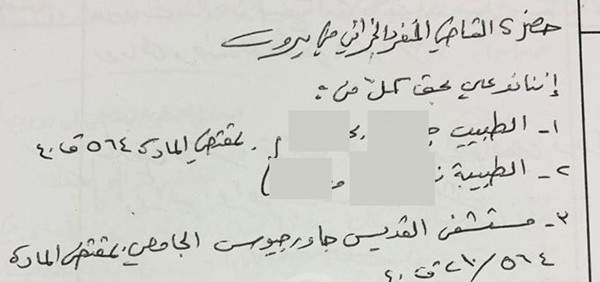 حضرة القاضي المنفرد الجزائي في بيروت
إننا ندعي بحق كلّ من :
١- الطبيب بمقتضى المادة ٥٦٤ ق.ع
٢- الطبيبة
٣- مستشفى القديس جاورجيوس الجامعي بمقتضى المادة
٥٦٤/٢١٠ ق.ع